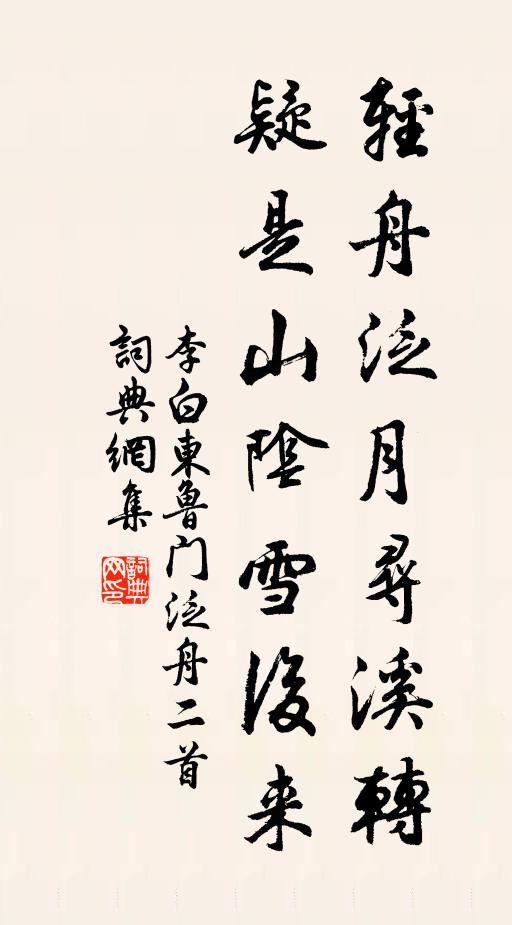 輕舟泛月尋溪轉
疑是山陰雪後来
李白東魯门泛舟二首
詞典網集
詞典网印